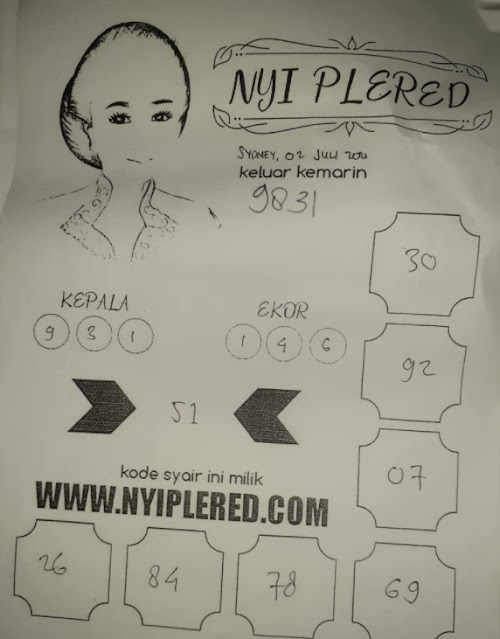 NYI PLERED
SYDNEY, 02 JULI 2011
keluar kemarin
9831
30
KEPALA
EKOR
9 3 1
1 4 6
92
51
07
kode syair ini milik
WWW.NYIPLERED.COM
26
84
78
69